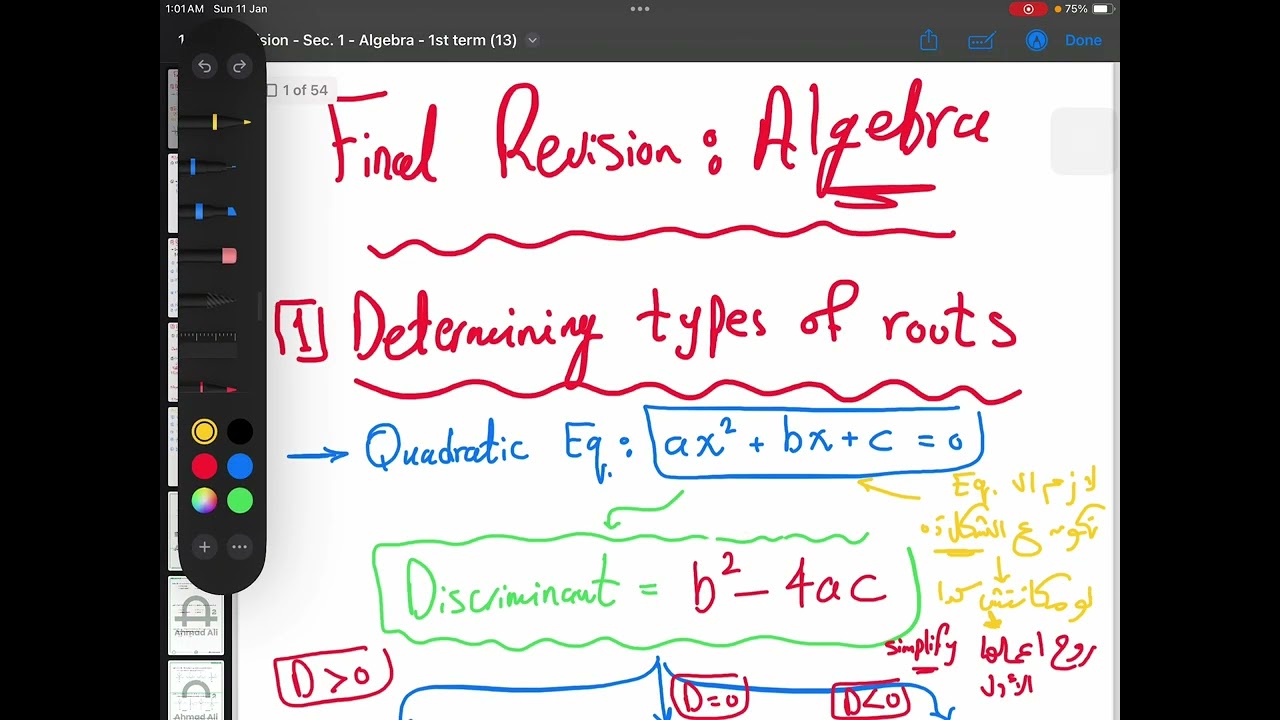 1:01 AM Sun 11 Jan
75%
1
sion - Sec. 1 - Algebra - 1st term (13)
Done
1 of 54
Final Revision: Algebra
[1] Determining types of roots
→ Quadratic Eq.: ax² + bx + c = 0
لازم الـ Eq.
تكون ع الشكل ده
لو مكانتش كدا
Discriminant = b² - 4ac
روح اعملها simplify
الأول
D > 0
D = 0
D < 0
Ahmad Ali
Ahmad Ali